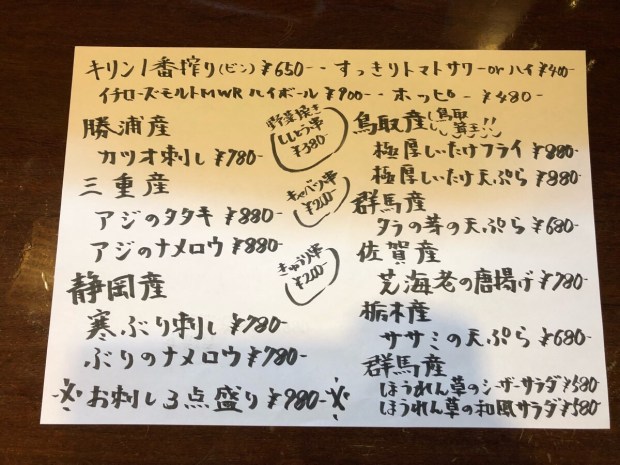 キリン1番搾り(ビン)¥650-・すっきりトマトサワーorハイ¥400-
イチローズモルトMWRハイボール¥900-・ホッピー ¥480-
勝浦産
カツオ刺し¥780-
三重産
アジのタタキ¥880-
アジのナメロウ¥880-
静岡産
寒ぶり刺し¥780-
ぶりのナメロウ¥780-
お刺し3点盛り¥980-
野菜焼き
ししとう串
¥380-
キャベツ串
¥200-
きゅうり串
¥200-
鳥取産
極厚しいたけフライ¥880-
極厚しいたけ天ぷら¥880-
群馬産
タラの芽の天ぷら¥680-
佐賀産
芝海老の唐揚げ¥780-
栃木産
ササミの天ぷら¥680-
群馬産
ほうれん草のシーザーサラダ¥580-
ほうれん草の和風サラダ¥580-